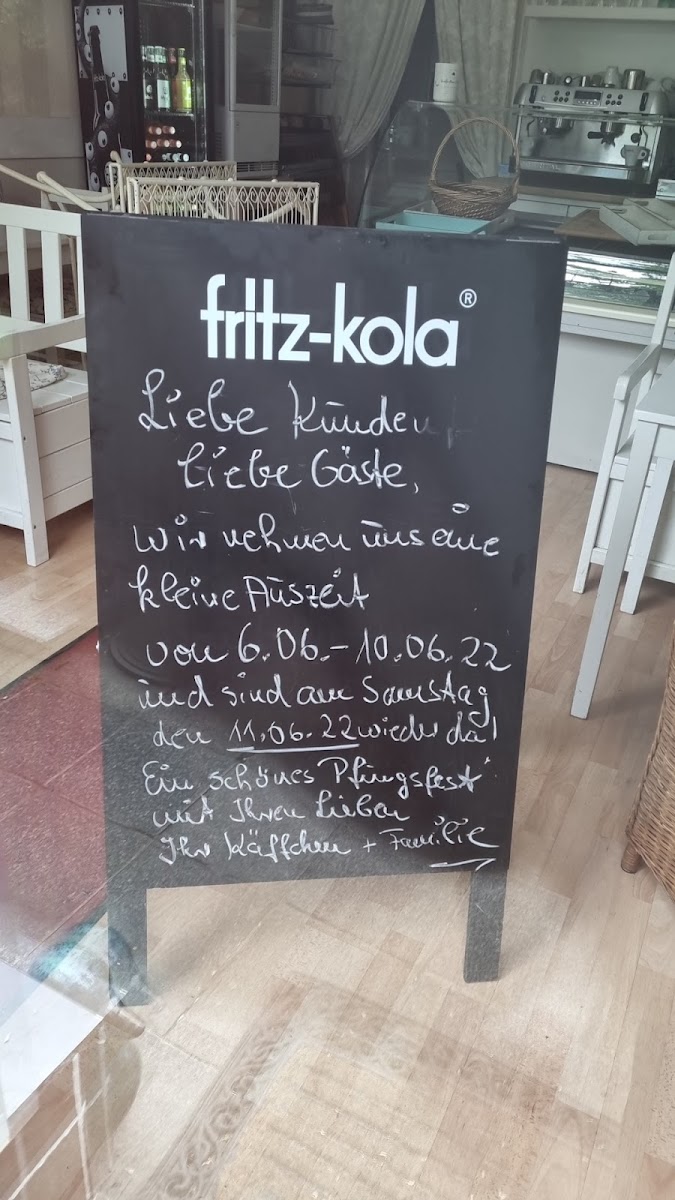 fritz-kola®
Liebe Kunden,
liebe Gäste,
wir nehmen uns eine
kleine Auszeit
von 6.06.-10.06.22
und sind am Samstag
den 11.06.22 wieder da!
Ein schönes Pfingsfest
mit Ihren Lieben
Ihr Käffchen + Familie